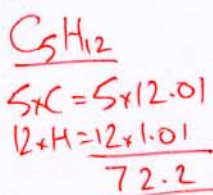 C₅H₁₂
5×C = 5×12.01
12×H = 12×1.01
72.2